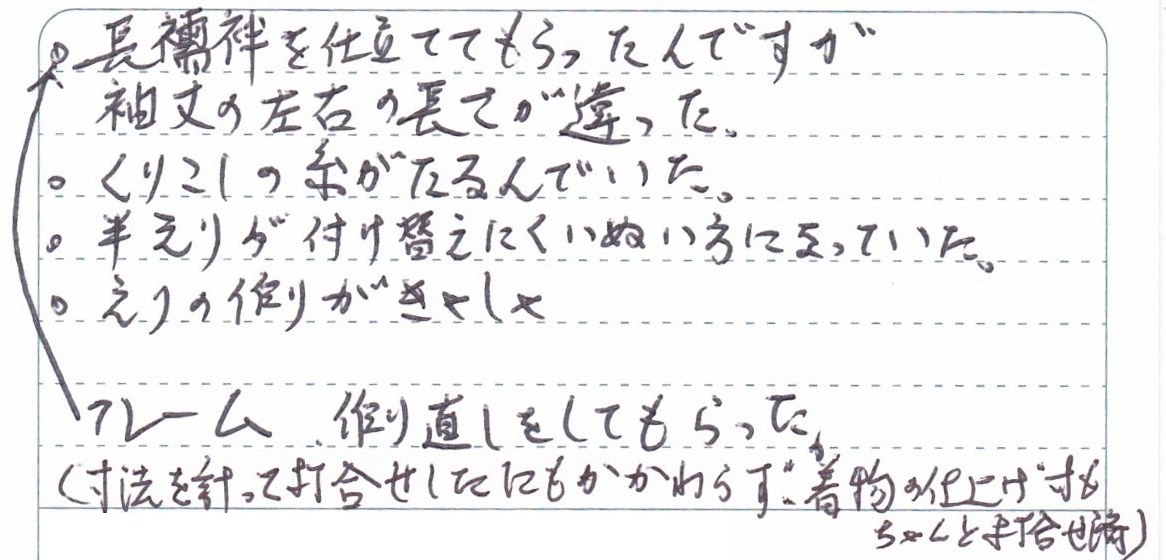 。長襦袢を仕立ててもらったんですが
袖丈の左右の長さが違った。
。くりこしの糸がたるんでいた。
。半えりが付け替えにくいぬい方になっていた。
。えりの作りがきゃしゃ
クレーム 作り直しをしてもらった。
(寸法を計って打合せしたにもかかわらず、着物の仕上げ寸も
ちゃんと打合せ済)